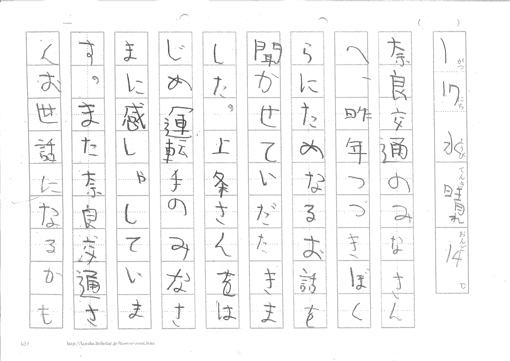 1がつ17にち 水ようび てんき晴れ おんど14℃
奈良交通のみなさん
へ、昨年つづきぼく
らにためなるお話を
聞かせていだたきま
した。上条さんをは
じめ運転手のみなさ
まに感しゃしていま
す。また奈良交通さ
んお世話になるかも